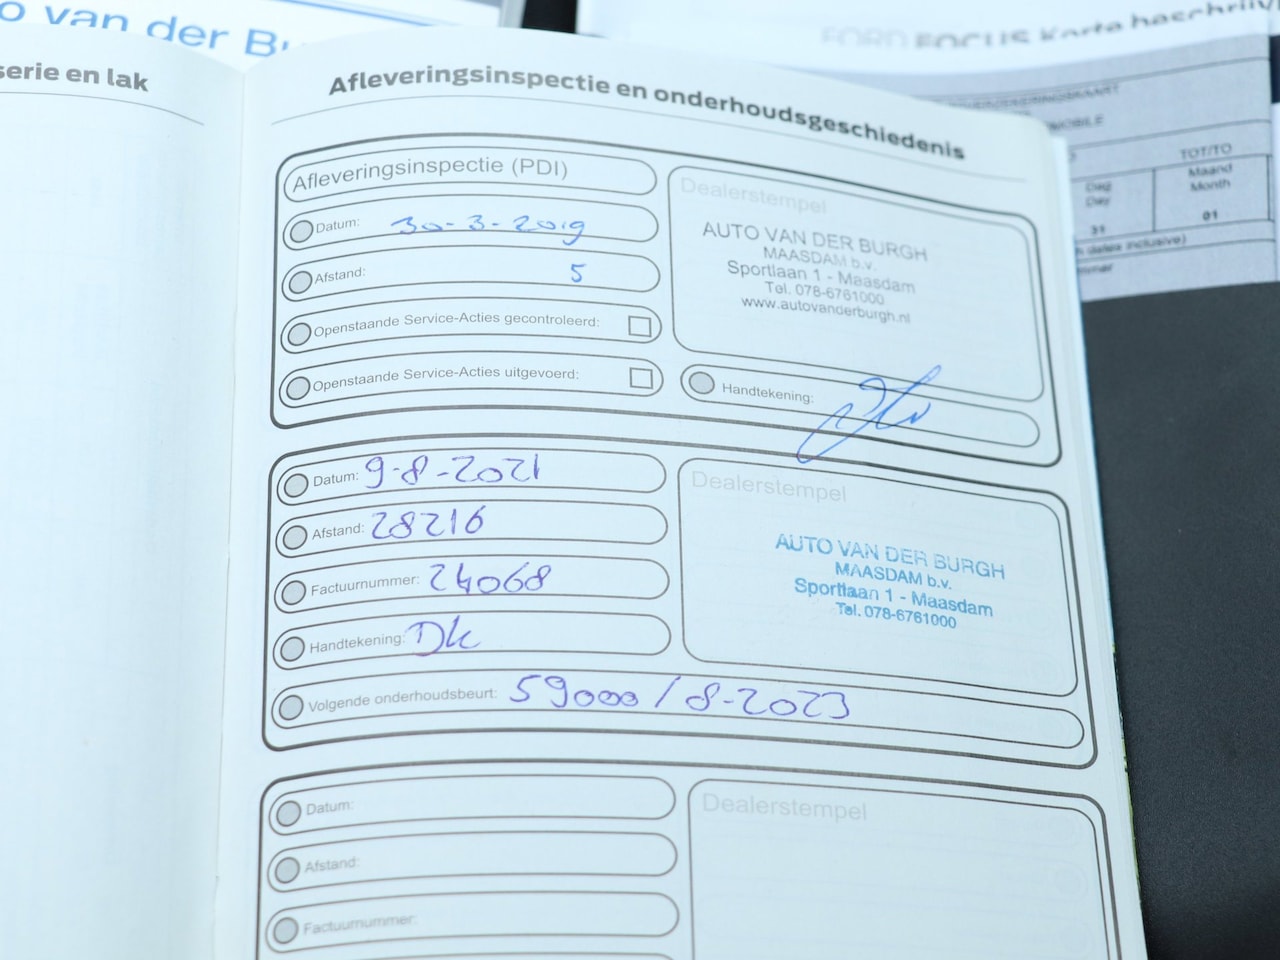 o van der Bu
FORD FOCUS Korte beschrijv
serie en lak
Afleveringsinspectie en onderhoudsgeschiedenis
Afleveringsinspectie (PDI)
Datum: 30-3-2019
Afstand: 5
Openstaande Service-Acties gecontroleerd:
Openstaande Service-Acties uitgevoerd:
Dealerstempel
AUTO VAN DER BURGH
MAASDAM b.v.
Sportlaan 1 - Maasdam
Tel. 078-6761000
www.autovanderburgh.nl
Handtekening:
Datum: 9-8-2021
Afstand: 28216
Factuurnummer: 24068
Handtekening: Dk
Volgende onderhoudsbeurt: 59000 / 8-2023
Dealerstempel
AUTO VAN DER BURGH
MAASDAM b.v.
Sportlaan 1 - Maasdam
Tel. 078-6761000
Datum:
Afstand:
Factuurnummer:
Dealerstempel
MOBILE
TOT/TO
Dag
Day
31
Maand
Month
01
dates inclusive)